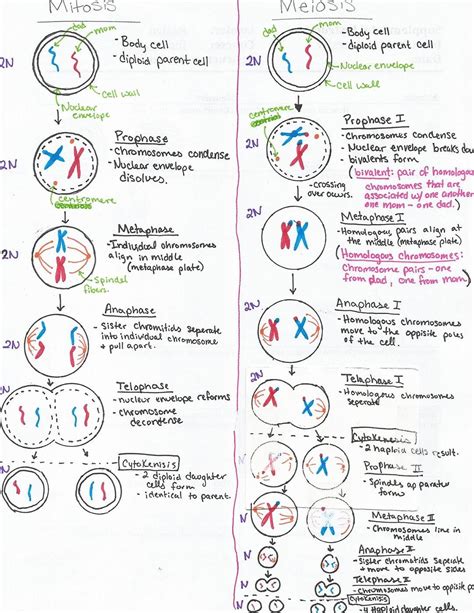 Mitosis
dad
mom
- Body cell
- diploid parent cell
2N
Cell wall
Nuclear
envelope
Prophase
- Chromosomes condense
- Nuclear envelope
disolves.
2N
centromere
Metaphase
- Individual chromosomes
align in middle
(metaphase plate)
2N
Spindel
fibers.
Anaphase
- Sister chromitids seperate
into individual chromosome
+ pull apart.
2N
Telophase
- nuclear envelope reforms
- chromosome
decondense
Cytokenisis
- 2 diploid daughter
cells form
- identical to parent.
N
Meiosis
dad
mom
- Body cell
- diploid parent cell
2N
Nuclear envelope
Cell wall
centromere
Prophase I
- Chromosomes condense
- Nuclear envelope breaks do
- bivalents form
(bivalent: pair of homologous
chromosomes that are
associated w/ one another
one mom - one dad.)
2N
- crossing
over occurs.
Metaphase I
- Homologous pairs align at
the middle (metaphase plate)
(Homologous chromosomes:
Chromosome pairs - one
from dad, one from mom)
2N
Anaphase I
- Homologous chromosomes
move to the opposite poles
of the cell.
2N
Telaphase I
- Homologous chromosomes
seperate
2N
Cytokenisis
- 2 haploid cells result.
Prophase II
- Spindles apparatus
forms
N
Metaphase II
- Chromosomes line in
middle
N
Anaphase II
- Sister chromitids seperate
+ move to opposite sides
N
Telephase II
N
Cytokenisis
- 4 Haploid daughter cells